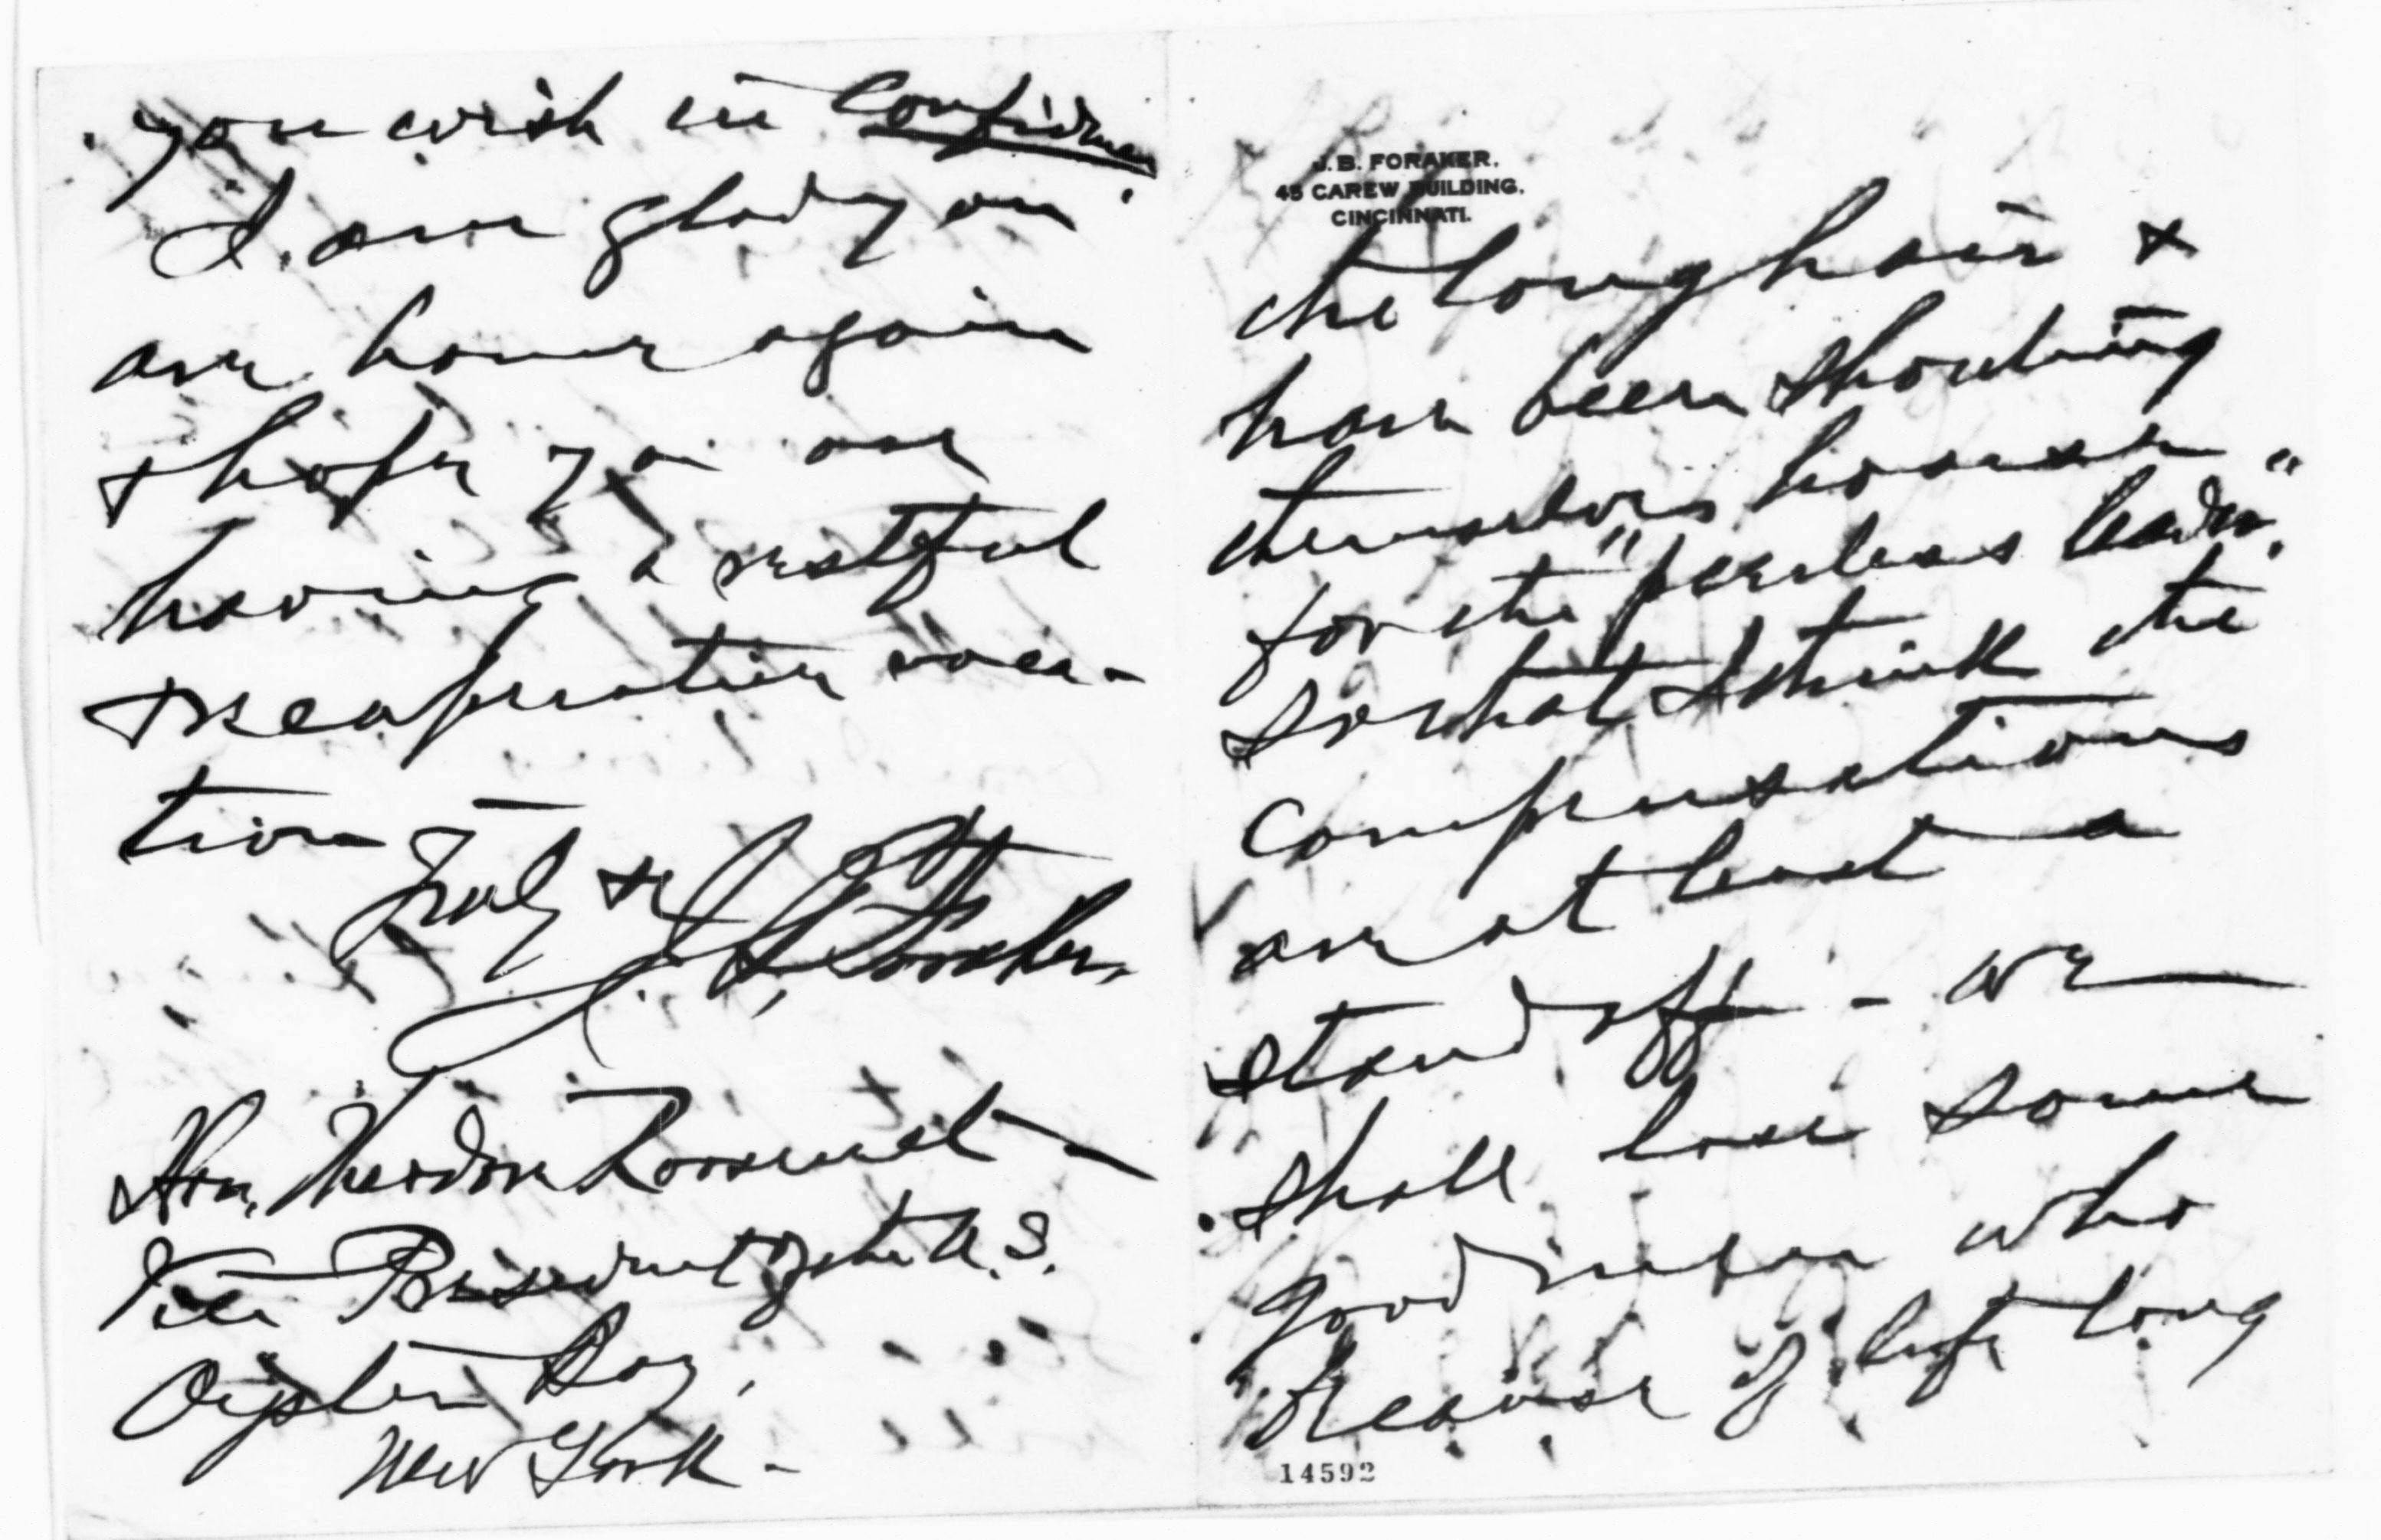 you wish in confidence.
I am glad you
are home again
& hope you are
having a restful
& recuperative vaca-
tion
Truly &c
J. B. Foraker.
Hon. Theodore Roosevelt
Vice President of the U.S.
Oyster Bay,
New York -
J. B. FORAKER.
45 CAREW BUILDING.
CINCINNATI.
the long hair &
have been shouting
themselves hoarse
for the "peerless leader".
So that I think the
compensations
are at least a
stand off - we
shall lose some
good men who
because of life long
14592